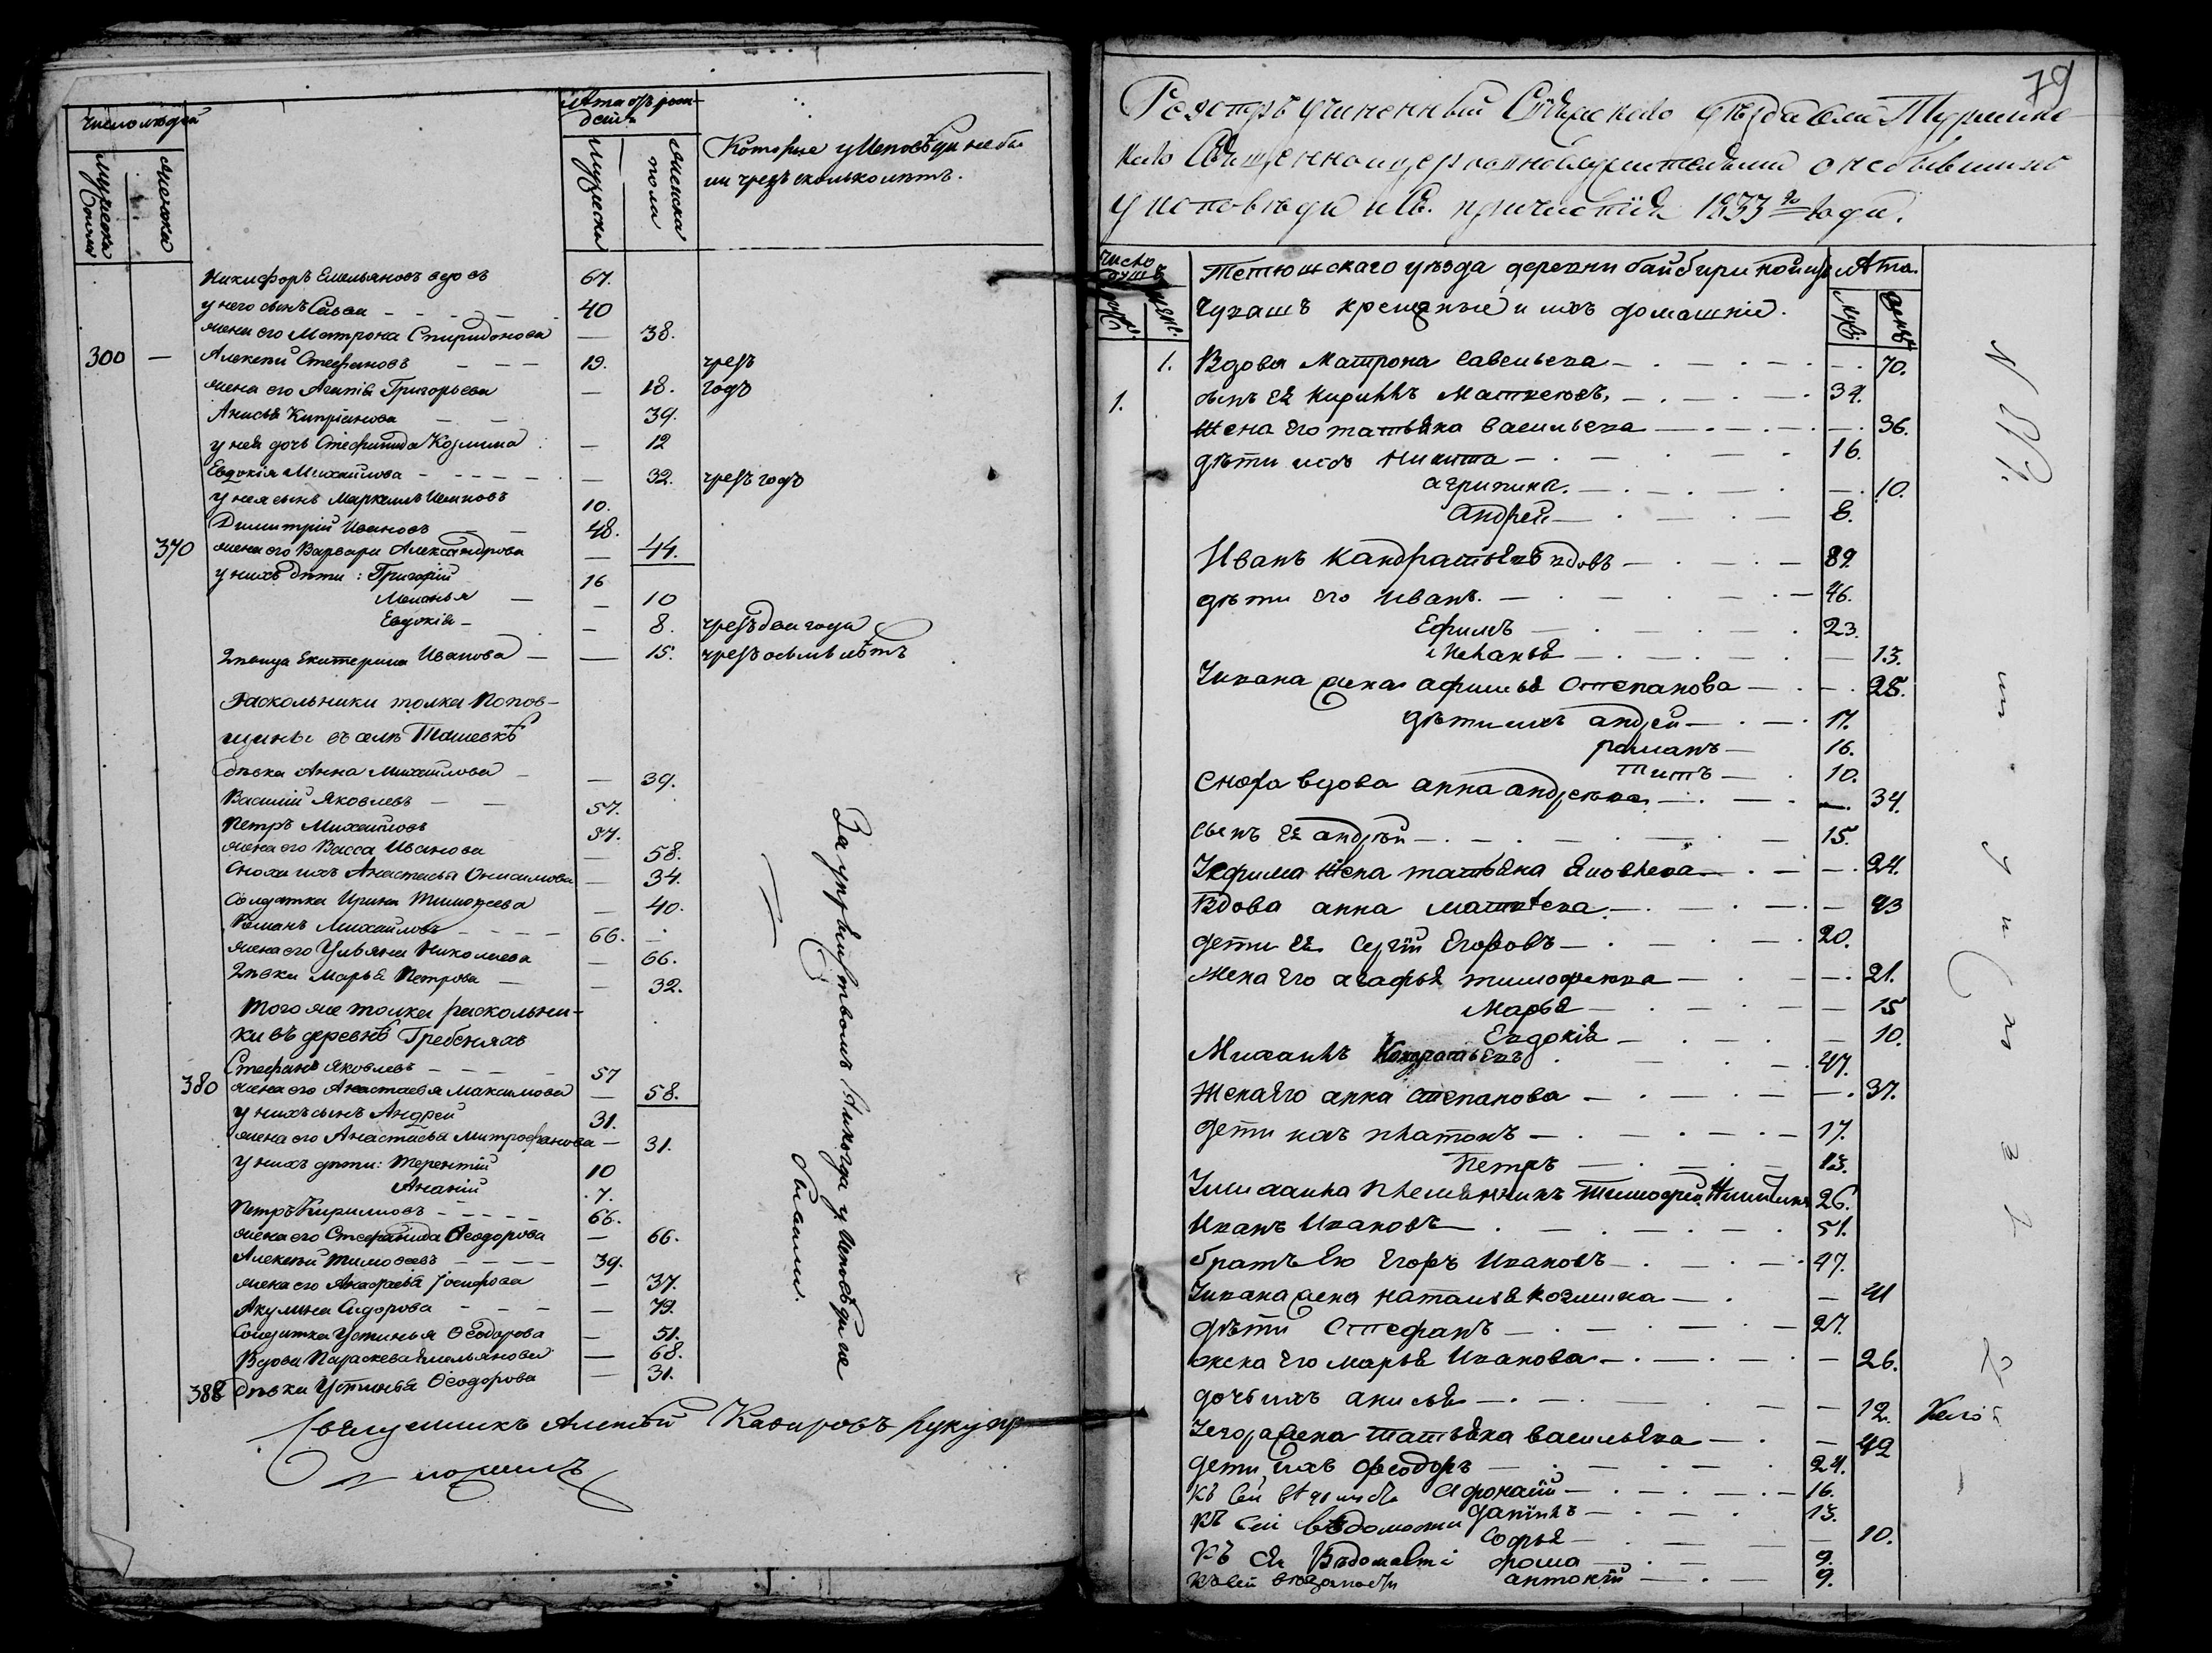 Число людей
мужеска пола
женска
Лѣта отъ рожденїя
мужеска
женска пола
Которые у Исповѣди небыли чрезъ сколько лѣтъ.
Никифоръ Емельяновъ вдовъ 67.
у него сынъ Савва 40
жена его Матрона Спиридонова — 38.
300 — Алексѣй Стефановъ 19. чрезъ
жена его Агапія Григорьева — 18. годъ
Анисья Кипріянова 39.
у нея дочь Стефанида Козмина — 12
Евдокія Михайлова — 32. чрезъ годъ
у нея сынъ Маркеллъ Ивановъ 10.
Димитрій Ивановъ 48.
370 жена его Варвара Александрова — 44.
у нихъ дѣти: Григорій 16
Меланья — 10
Евдокія — 8. чрезъ два года
Дѣвица Екатерина Иванова — 15. чрезъ осьмь лѣтъ
Раскольники толка Попов-
щины въ селѣ Ташевкѣ
дѣвка Анна Михайлова — 39.
Василій Яковлевъ 57.
Петръ Михайловъ 57.
жена его Васса Иванова — 58.
Сноха ихъ Анастасья Онисимова — 34.
Солдатка Ирина Тимоѳеева — 40.
Романъ Михайловъ 66.
жена его Ульяна Николаева — 66.
Дѣвка Марья Петрова — 32.
Того же толка раскольни-
ки въ деревнѣ Гребеняхъ
Стефанъ Яковлевъ 57
380 жена его Анастасья Максимова — 58.
у нихъ сынъ Андрей 31.
жена его Анастасья Митрофанова — 31.
у нихъ дѣти: Терентій 10
Ананій 7.
Петръ Кириловъ 66.
жена его Стефанида Ѳеодорова — 66.
Алексѣй Тимоѳеевъ 39.
жена его Іосифова — 37.
Акулина Сидорова — 79.
Солдатка Устинья Ѳеодорова — 51.
Вдова Параскева Емельянова — 68.
388 дѣвка Устинья Ѳеодорова — 31.
никогда у Исповѣди не бывали.
Священникъ Алексѣй руку при-
ложилъ
79
Реэстръ учиненный Свіяскаго уѣзда села Турмин-
каго Священноцерковнослужителями о небывшихъ
у исповѣди и Св. причастїя 1833го года.
число душъ
муж.
женс.
Тетюшскаго уѣзда деревни байбирикойшъ
Чувашъ крещеные и ихъ домашніе.
Лѣта
муж.
женъ
1. Вдова Матрона савельева 70.
1. сынъ ея кириллъ Матвеювъ, 34.
Жена его татьяна васильева 36.
дѣти ихъ никита 16.
агрипина. 10.
андрей 8.
Иванъ кандратьевъ вдовъ 89.
дѣти его иванъ. 46.
Ефимъ 23.
меланья 13.
Уивана жена афимья степанова 28.
дѣти ихъ андрей 17.
раманъ 16.
титъ 10.
Сноха вдова анна андреева 34.
сынъ ея андрѣй 15.
Уефима жена татьяна Яковлева 24.
Вдова анна матвева 43
дети ея сергїй Егоровъ 20.
жена его агафья тимофеева 21.
Марья 15
Евдокія 10.
Михаилъ Кондратьевъ 47.
Жена его анна степанова 37.
дети ихъ платонъ 17.
Петръ 13.
Умихаила племянникъ тимофей 26.
Иванъ Ивановъ 51.
братъ Ево Егоръ Ивановъ 47.
Уивана жена наталья козмина 41
дѣти Стефанъ 27.
жена его марья Иванова 26.
дочь ихъ анисья 12.
Уегора жена татьяна васильева 42
дети ихъ феодоръ 24.
Афонасїй 16.
къ сей вѣдомости данїилъ 13.
софья 10.
къ сей Вѣдомости фома 9.
къ сей антонїй 9.